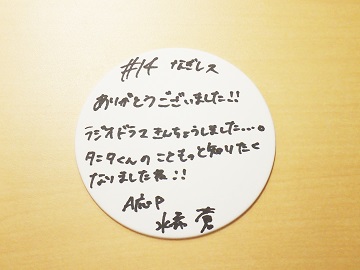 #14 なぎレス
ありがとうございました!!
ラジオドラマ きんちょうしました…。
タニタくんのこともっと知りたく
なりましたね!!
A応P
水希 蒼